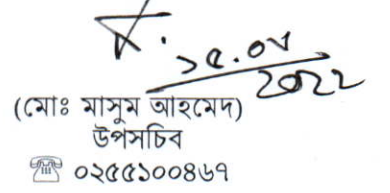 ১৫.০৭
2022
(মোঃ মাসুম আহমেদ)
উপসচিব
☎ ০২৫৫১০০৪৬৭